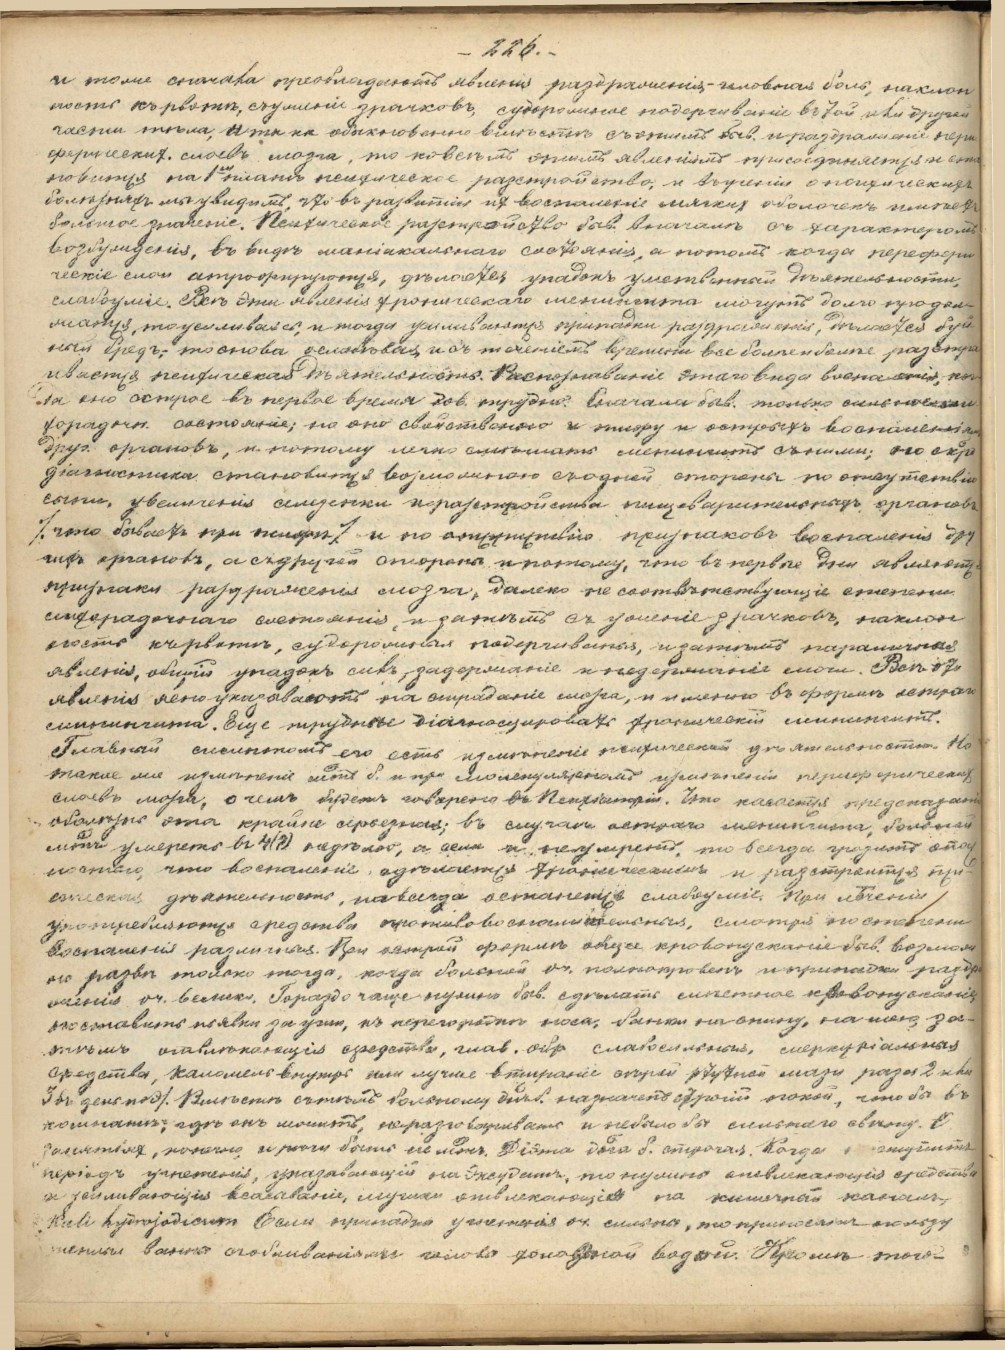 - 226. -
и тоже сначала преобладаютъ явленія раздраженія - головная боль, наклон
ность къ рвотѣ, съуженіе зрачковъ, судорожное подергиваніе въ той или другой
части тѣла, а такъ какъ обыкновенно вмѣстѣ съ этимъ быв. и раздраженіе пери
ферическихъ слоевъ мозга, то ко всѣмъ этимъ явленіямъ присоединяется и ста
новится на 1ый планъ психическое разстройство, и въ ученіи о психическихъ
болѣзняхъ мы увидимъ, что въ развитіи ихъ воспаленіе мягкихъ оболочекъ имѣетъ
большое значеніе. Психическое разстройство быв. вначалѣ съ характеромъ
возбужденія, въ видѣ маніакальнаго состоянія, а потомъ когда перефери
ческіе слои атрофируются, дѣлается упадокъ умственной дѣятельности,
слабоуміе. Всѣ эти явленія хроническаго менингита могутъ долго продол-
жаться, то усиливаясь, и тогда усиливаются припадки раздраженія, дѣлается буй
ный бредъ, то снова ослабѣвая, и съ теченіемъ времени все болѣе и болѣе разстра
ивается психическая дѣятельность. Распознаваніе этаго вида воспаленія, ког
да оно острое въ первое время быв. трудно. Сначала быв. только сильное
лихорадочн. состояніе; но оно свойственно и тифу и острымъ воспаленіямъ
друг. органовъ, и потому легко смѣшать менингитъ съ ними; но скоро
діагностика становится возможною съ одной стороны по отсутствію
сыпи, увеличенія селезенки и разстройства пищеварительныхъ органовъ
/что бываетъ при тифѣ/ и по отсутствію признаковъ воспаленія дру
гихъ органовъ, а съ другой стороны и потому, что въ первые дни являются
признаки раздраженія мозга, далеко не соотвѣтствующіе степени
лихорадочнаго состоянія, и затѣмъ съуженіе зрачковъ, наклон
ность къ рвотѣ, судорожныя подергиванія, и затѣмъ паралитичныя
явленія, общій упадокъ силъ, задержаніе и недержаніе мочи. Всѣ эти
явленія ясно указываютъ на страданіе мозга, и именно въ формѣ остраго
менингита. Еще труднѣе діагносцировать хроническій менингитъ.
Главный симптомъ его есть измѣненіе психической дѣятельности. Но
такое же измѣненіе б. и при молекулярномъ измѣненіи периферическихъ
слоевъ мозга, о чемъ будетъ говорено въ Психіатріи. Что касается предсказанія
болѣзнь эта крайне серьезная; въ случаѣ остраго менингита, больной
умереть въ 4(?) недѣлю, а если и не умретъ, то всегда грозитъ опас
ность того, что воспаленіе сдѣлается хроническимъ и разстроится пси-
хическая дѣятельность, навсегда останется слабоуміе. При лѣченіи
употребляются средства противовоспалительныя, смотря по степени
воспаленія различныя. При острой формѣ общее кровопусканіе быв. возмож
но развѣ только тогда, когда больной оч. полнокровенъ и припадки раздра
женія оч. велики. Гораздо чаще нужно быв. сдѣлать мѣстное кровопусканіе
поставить піявки за уши, къ перегородкѣ носа, банки на спину, на шею, за-
тѣмъ отвлекающія средства, глав. обр. слабосильныя, меркуріальныя
средства, каломель внутрь или лучше втираніе сѣрой ртутной мази раза 2 или
3 въ день по Э/. Вмѣстѣ съ тѣмъ больному быв. назначенъ строгій покой, чтобы въ
комнатѣ, гдѣ онъ лежитъ, не разговаривали и не было бы сильнаго свѣту.
Діэта б. строгая. Когда наступитъ
періодъ угнетенія, указывающій на экссудатъ, то нужно отвлекающія средства
и усиливающія всасываніе, мушки отвлекающія на кишечный каналъ,
Kali hydrojodicum Если припадки угнетенія оч. сильны, то приносятъ пользу
теплыя ванны съ обливаніями головы холодной водой. Кромѣ того-